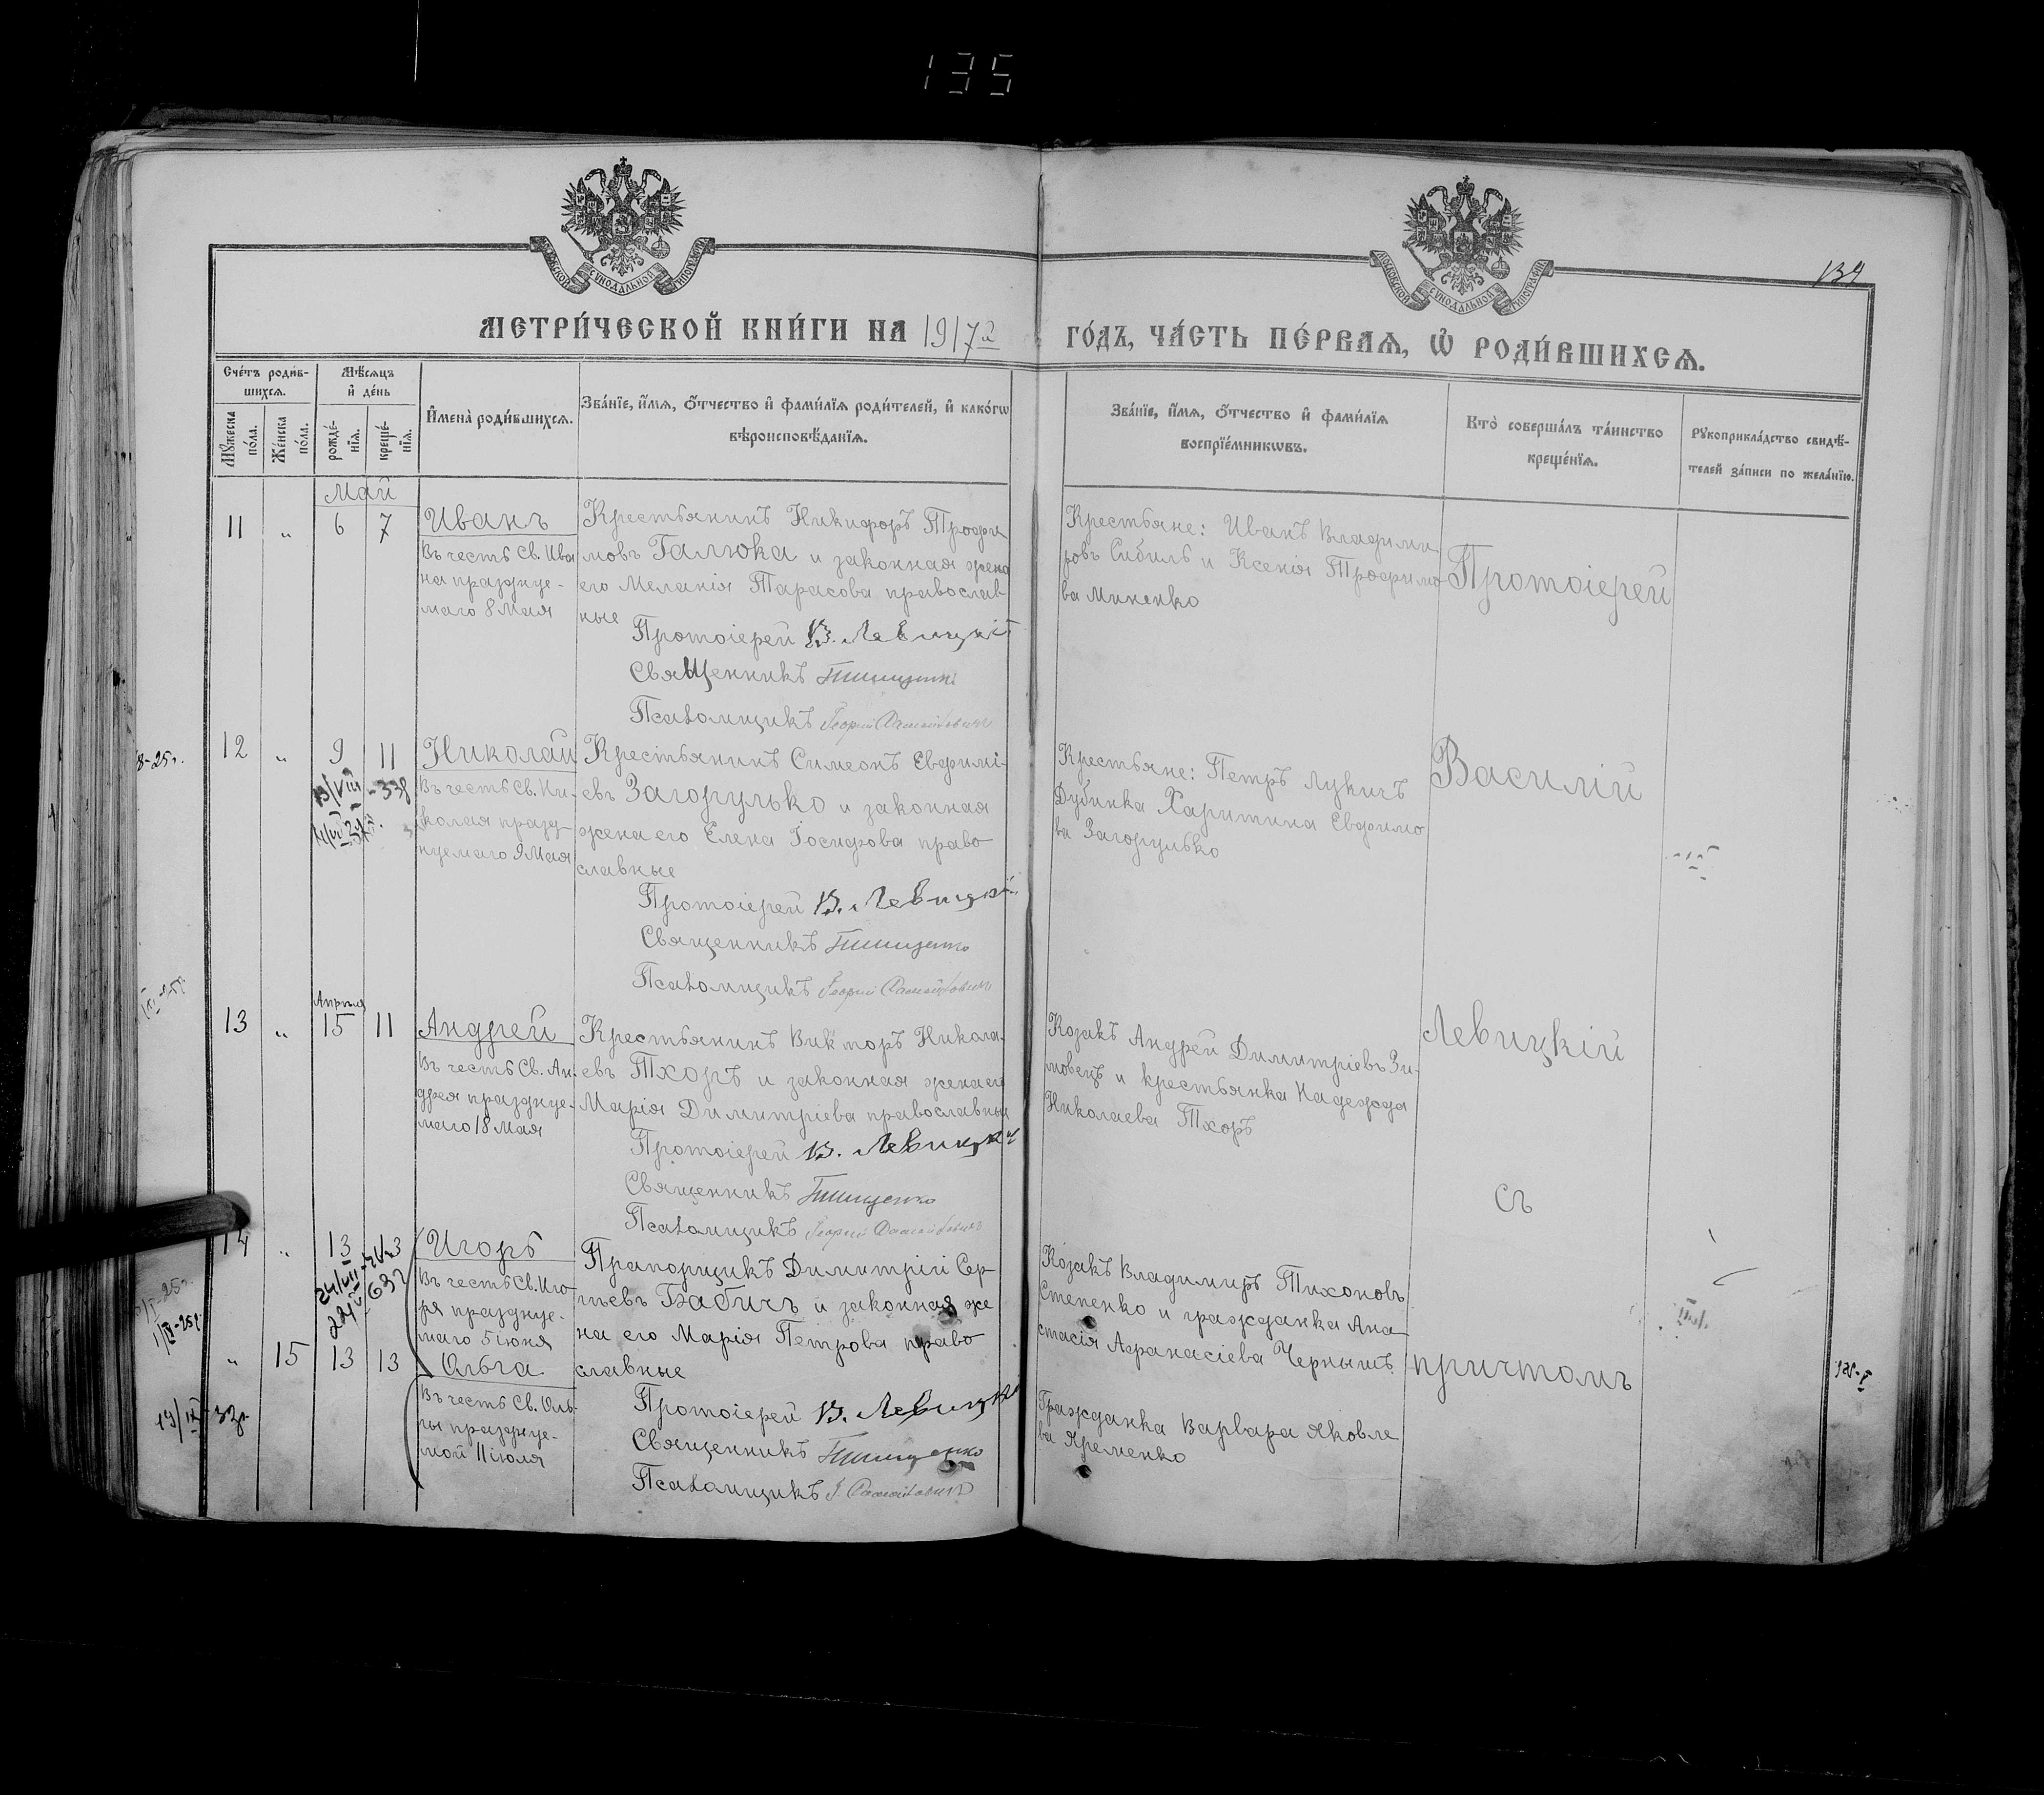 135
134
МОСКОВСКОЙ СѴНОДАЛЬНОЙ ТИПОГРАФІИ
МОСКОВСКОЙ СѴНОДАЛЬНОЙ ТИПОГРАФІИ
МЕТРИ́ЧЕСКОЙ КНИ́ГИ НА 1917й ГО́ДЪ, ЧА́СТЬ ПЕ́РВАЯ, Ѡ҆ РОДИ́ВШИХСЯ.
Сче́тъ роди́в-
шихсѧ.
Мꙋ́жеска
по́ла.
Же́нска
по́ла.
Мѣ́сѧцъ
и҆ де́нь
рожде́-
нїѧ.
креще́-
нїѧ.
И҆мена̀ роди́вшихсѧ.
Зва́нїе, и҆́мѧ, ѻ҆́тчество и҆ фами́лїѧ роди́телей, и҆ како́гѡ
вѣроисповѣ́данїѧ.
Зва́нїе, и҆́мѧ, ѻ҆́тчество и҆ фами́лїѧ
воспрїе́мникѡвъ.
Кто̀ соверша́лъ та́инство
креще́нїѧ.
Рꙋкоприкла́дство свидѣ́-
телей за́писи по жела́нїю.
Май
11 " 6 7
Иванъ
Въ честь Св. Ива
на празднуе-
маго 8 Мая
Крестьянинъ Никифоръ Трофи
мовъ Галюка и законная жена
его Меланія Тарасова православ
ные
Протоіерей В. Левицкій
Священникъ Тищенко
Псаломщикъ Георгій
Крестьяне: Иванъ Владими
ровъ Сибиль и Ксенія Трофимо
ва Миненко
Протоіерей
12 " 9 11
Николай
Въ честь Св. Ни-
колая празд-
нуемаго 9 Мая
Крестьянинъ Симеонъ Евфимі-
евъ Загорулько и законная
жена его Елена Іосифова право
славные
Протоіерей В. Левицкій
Священникъ Тищенко
Псаломщикъ Георгій
Крестьяне: Петръ Лукичъ
Дубинка Харитина Евфимо
ва Загорулько
Василій
Апрѣля
13 " 15 11
Андрей
Въ честь Св. Ан-
дрея празднуе-
маго 18 Мая
Крестьянинъ Викторъ Никола-
евъ Тхоръ и законная жена его
Марія Димитріева православные
Протоіерей В. Левицкій
Священникъ Тищенко
Псаломщикъ Георгій
Козакъ Андрей Димитріевъ Зи-
мовецъ и крестьянка Надежда
Николаева Тхоръ
Левицкій
съ
14 " 13
Игорь
Въ честь Св. Иго-
ря празднуе-
маго 5 іюня
Прапорщикъ Димитрій Сер-
гѣевъ Бабичъ и законная же
на его Марія Петрова право
славные
Козакъ Владимиръ Тихоновъ
Степенко и гражданка Ана-
стасія Афанасіева Чернышъ
причтомъ
" 15 13 13
Ольга
Въ честь Св. Оль-
ги празднуе-
мой 11 іюля
Протоіерей В. Левицкій
Священникъ Тищенко
Псаломщикъ Г.
Гражданка Варвара Яковле
ва Яременко